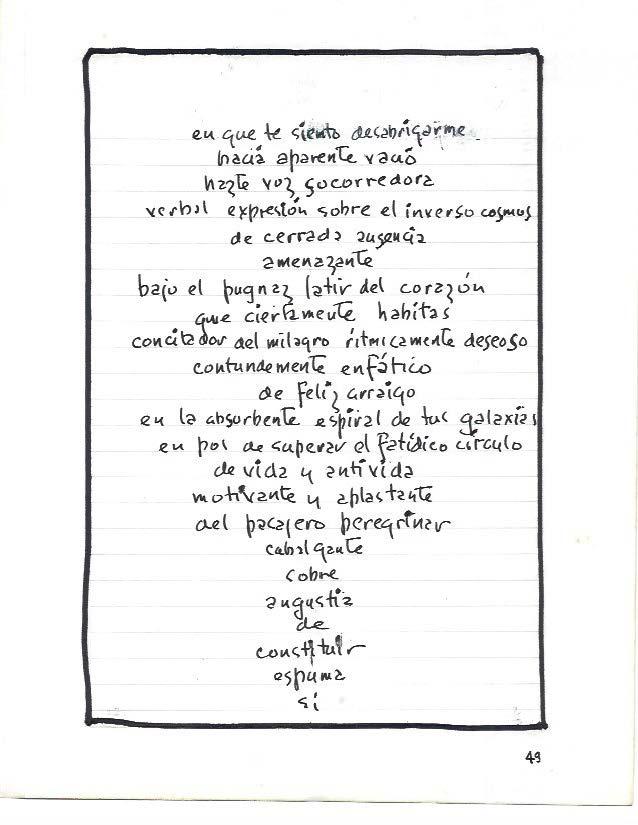 en que te siento desabrigarme
hacia aparente vacío
hazte voz socorredora
verbal expresión sobre el inverso cosmos
de cerrada ausencia
amenazante
bajo el pugnaz latir del corazón
que ciertamente habitas
concitador del milagro rítmicamente deseoso
contundemente enfático
de feliz arraigo
en la absorbente espiral de tus galaxias
en pos de superar el fatídico círculo
de vida y antivida
motivante y aplastante
del pasajero peregrinar
cabalgante
sobre
angustia
de
constituir
espuma
sí
49